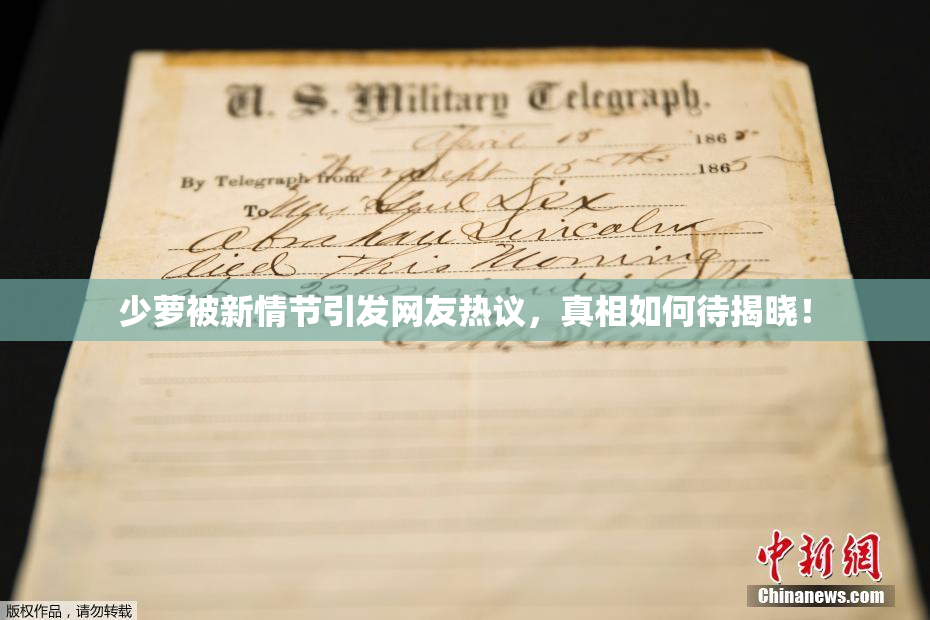 U. S. Military Telegraph.
April 15 1865
By Telegraph from War Dept 15th 1865
To Maj Genl Dix
Abraham Lincoln
died This Morning
at 22 minutes after
少萝被新情节引发网友热议，真相如何待揭晓！
E. M. Stanton
中新网
Chinanews.com
版权作品，请勿转载